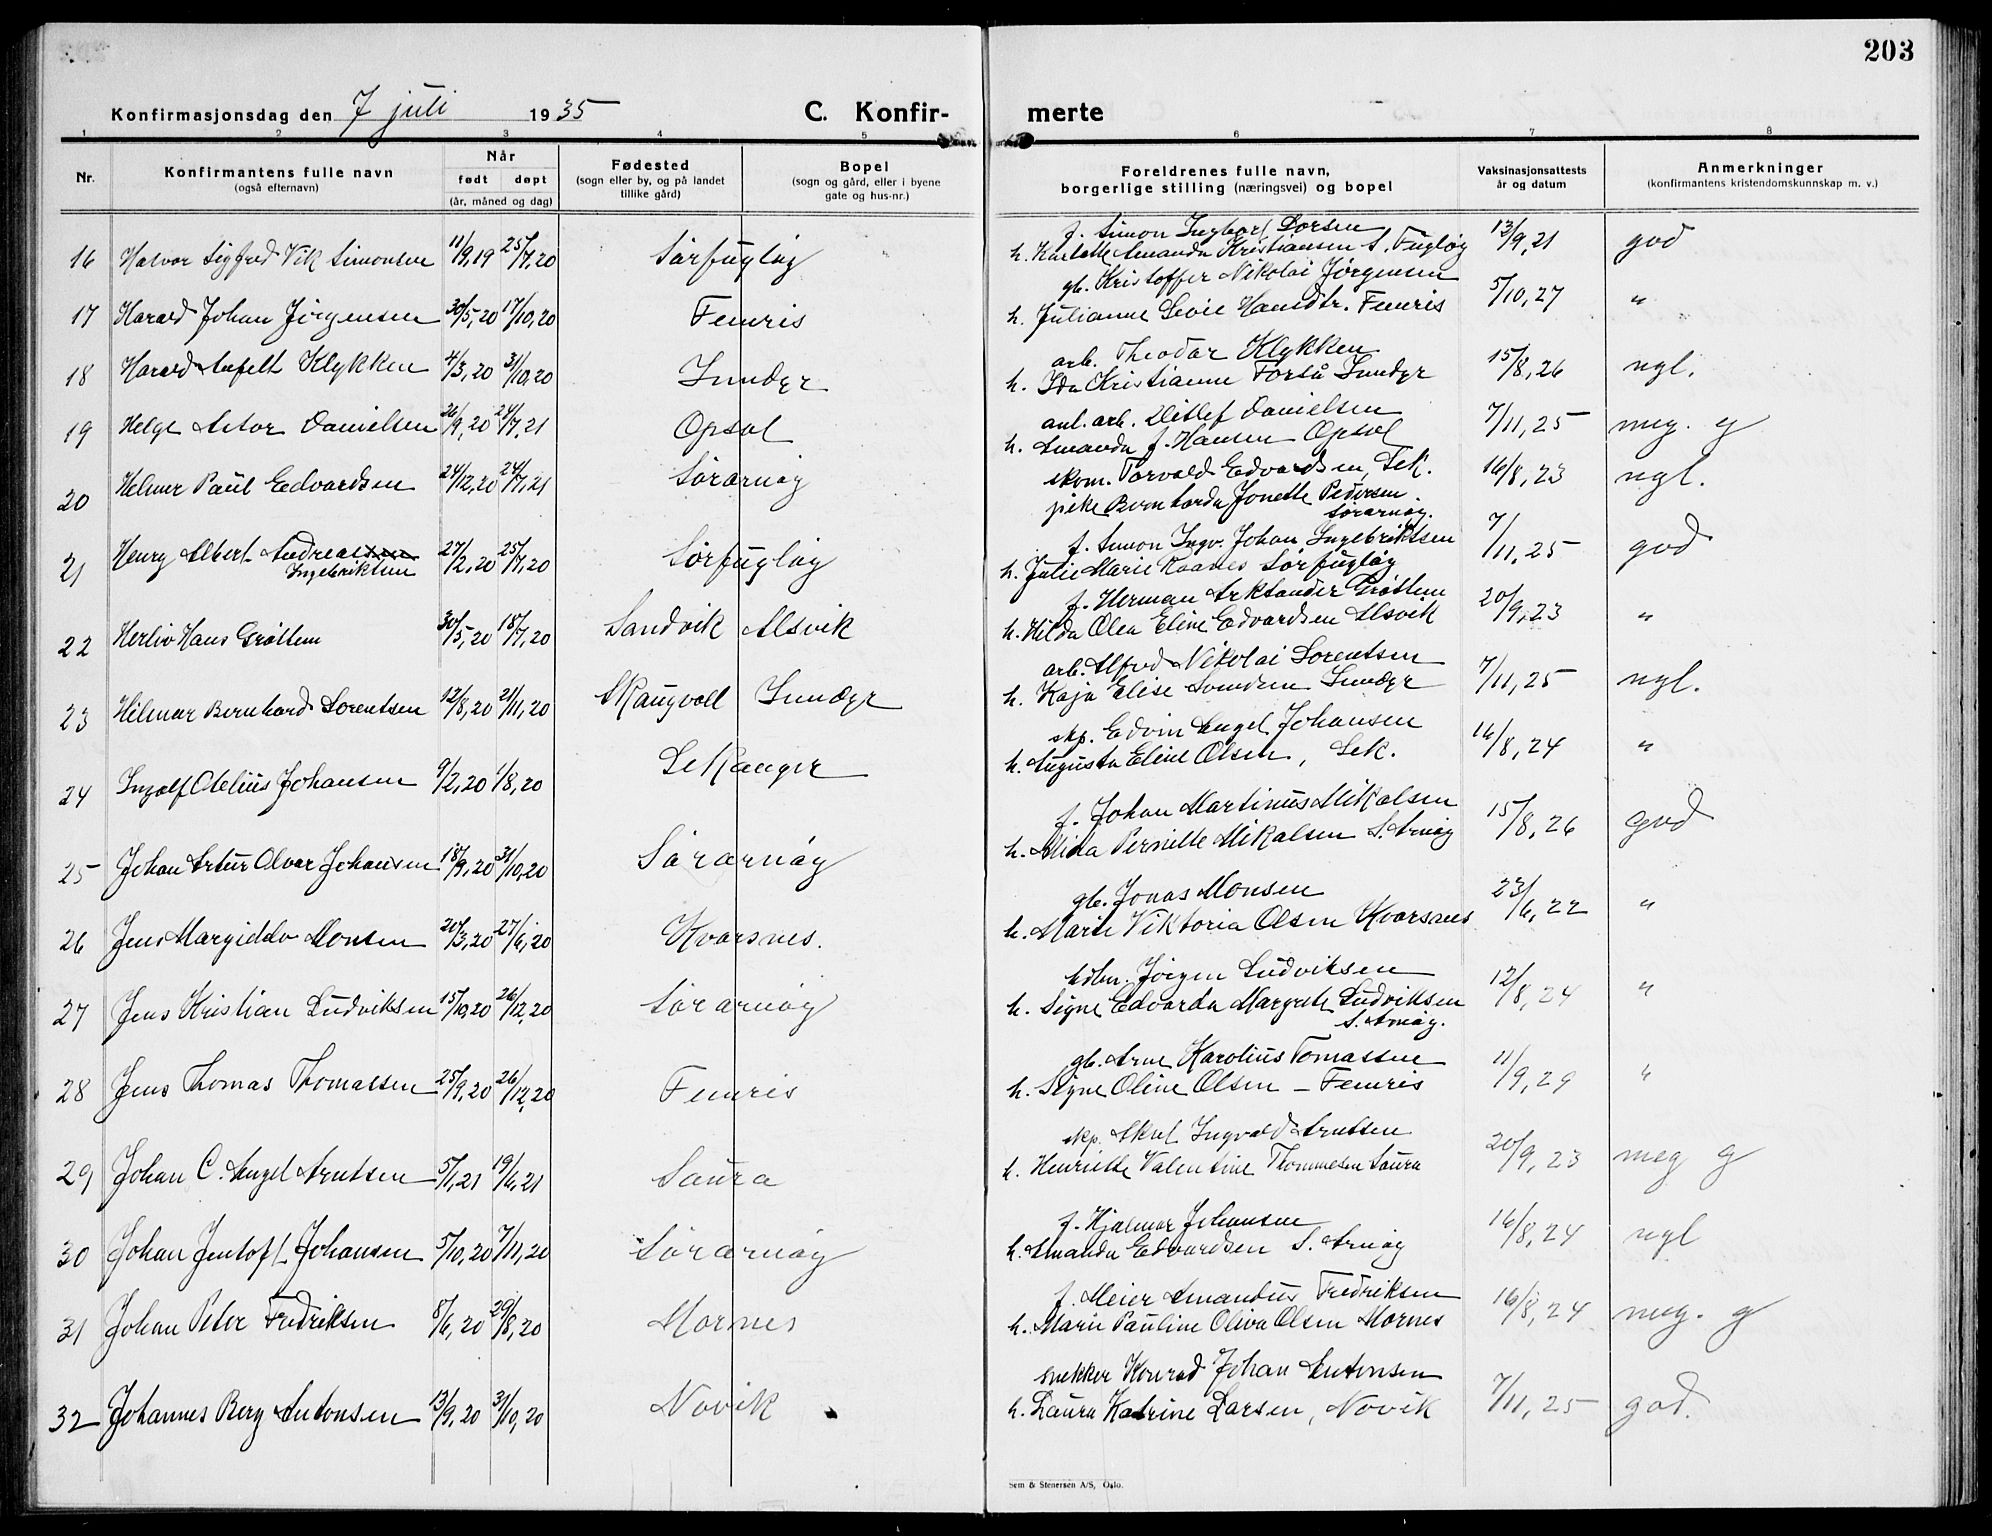 203
Konfirmasjonsdag den 7 juli 1935
C. Konfir-
merte
1 2 3 4 5 6 7 8
Nr.
Konfirmantens fulle navn
(også efternavn)
Når
født døpt
(år, måned og dag)
Fødested
(sogn eller by, og på landet
tillike gård)
Bopel
(sogn og gård, eller i byene
gate og hus-nr.)
Foreldrenes fulle navn,
borgerlige stilling (næringsvei) og bopel
Vaksinasjonsattests
år og datum
Anmerkninger
(konfirmantens kristendomskunnskap m. v.)
f. Simon Ingbart Dorsen
16 Halvor Sigfred Vik Simonsen 11/9,19 25/7,20 Sørfugløy h. Karlotte Amanda Kristiansen S. Fugløy 13/9,21 god
gb. Kristoffer Nikolai Jørgensen
17 Harald Johan Jørgensen 30/5,20 17/10,20 Femris h. Julianne Hansdtr. Femris 5/10,27 "
arb. Theodor Klykken
18 Harald Anfelt Klykken 4/3,20 31/10,20 Inndyr h. Ida Kristianne Forså Inndyr 15/8,26 ngl.
anl. arb. Ditlef Danielsen
19 Helge Astor Danielsen 26/9,20 24/7,21 Opsal h. Amanda f. Hansen Opsal 7/11,25 meg. g
skom. Torvald Edvardsen, Lek.
20 Helmer Paul Edvardsen 24/12,20 24/7,21 Sørarnøy pike Bernharda Jonette Pedersen 16/8,23 ngl.
Sørarnøy.
f. Simon Ingv. Johan Ingebriktsen
21 Henry Albert Andreassen 27/2,20 25/7,20 Sørfugløy h. Julie Marie Kaanes Sørfugløy 7/11,25 god
Ingebriktsen
f. Herman Aleksander Grøttem
22 Herliv Hans Grøttem 30/5,20 18/7,20 Sandvik Alsvik h. Hilda Olea Eline Edvardsen Alsvik 20/9,23 "
arb. Alfred Nikolai Lorentsen
23 Hilmar Bernhard Lorentsen 12/8,20 21/11,20 Skaugvoll Inndyr h. Kaja Elise Svendsen Inndyr 7/11,25 ngl.
skp. Edvin Angel Johansen
24 Ingolf Otelius Johansen 9/2,20 1/8,20 Lekanger h. Augusta Eline Olsen, Lek. 16/8,24 "
f. Johan Martinus Mikalsen
25 Johan Artur Olvar Johansen 18/9,20 31/10,20 Sørarnøy h. Alida Pernille Mikalsen S. Arnøy 15/8,26 god
gb. Jonas Monsen
26 Jens Margiddo Monsen 20/3,20 27/6,20 Kvarsnes. h. Marie Viktoria Olsen Kvarsnes 23/6,22 "
hdlm. Jørgen Ludviksen
27 Jens Kristian Ludviksen 15/10,20 26/12,20 Sørarnøy h. Signe Edvarda Margrete Ludviksen 12/8,24 "
S. Arnøy.
gb. Arne Karolius Tomassen
28 Jens Thomas Thomassen 25/9,20 26/12,20 Femris h. Signe Oline Olsen - Femris 11/9,29 "
skp. Aksel Ingvald Arntsen
29 Johan C. Angel Arntsen 5/1,21 19/6,21 Saura h. Henriette Valentine Thommesen Saura 20/9,23 meg g
f. Hjalmar Johansen
30 Johan Jentoft Johansen 5/10,20 7/11,20 Sørarnøy h. Amanda Edvardsen S. Arnøy 16/8,24 ngl
f. Meier Amandus Fredriksen
31 Johan Peter Fredriksen 8/6,20 29/8,20 Mornes h. Marie Pauline Oliva Olsen Mornes 16/8,24 meg. g
snekker Konrad Johan Antonsen
32 Johannes Berg Antonsen 13/9,20 31/10,20 Novik h. Laura Katrine Larsen, Novik 7/11,25 god.
Sem & Stenersen A/S, Oslo.